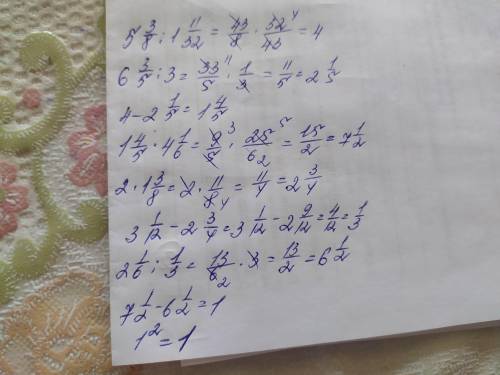 5 3/8 : 1 11/32 = 43/8 · 32⁴/43 = 4
6 3/5 : 3 = 33¹¹/5 · 1/3 = 11/5 = 2 1/5
4 - 2 1/5 = 1 4/5
1 4/5 · 4 1/6 = 9³/5 · 25⁵/6₂ = 15/2 = 7 1/2
2 · 1 3/8 = 2 · 11/8₄ = 11/4 = 2 3/4
3 1/12 - 2 3/4 = 3 1/12 - 2 9/12 = 4/12 = 1/3
2 1/6 : 1/3 = 13/6₂ · 3 = 13/2 = 6 1/2
7 1/2 - 6 1/2 = 1
1² = 1